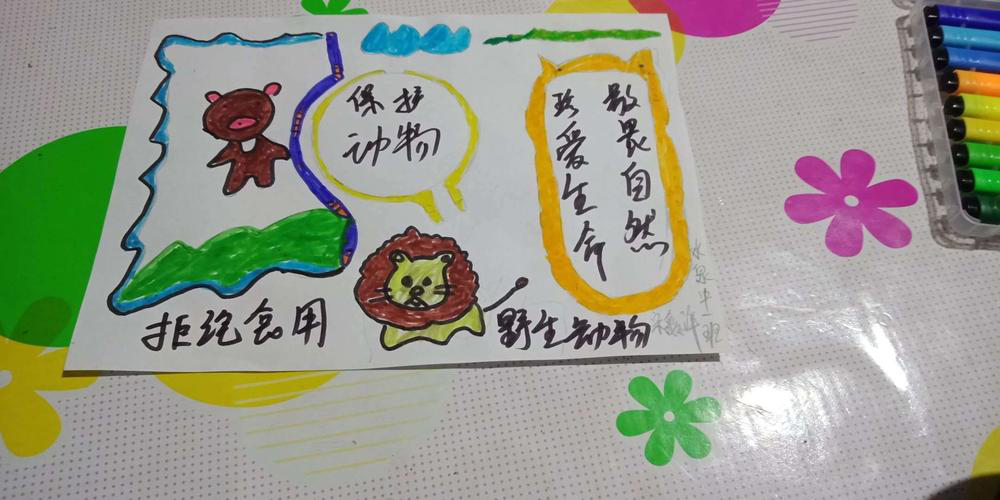 保护
动物
敬畏自然
珍爱生命
拒绝食用
野生动物